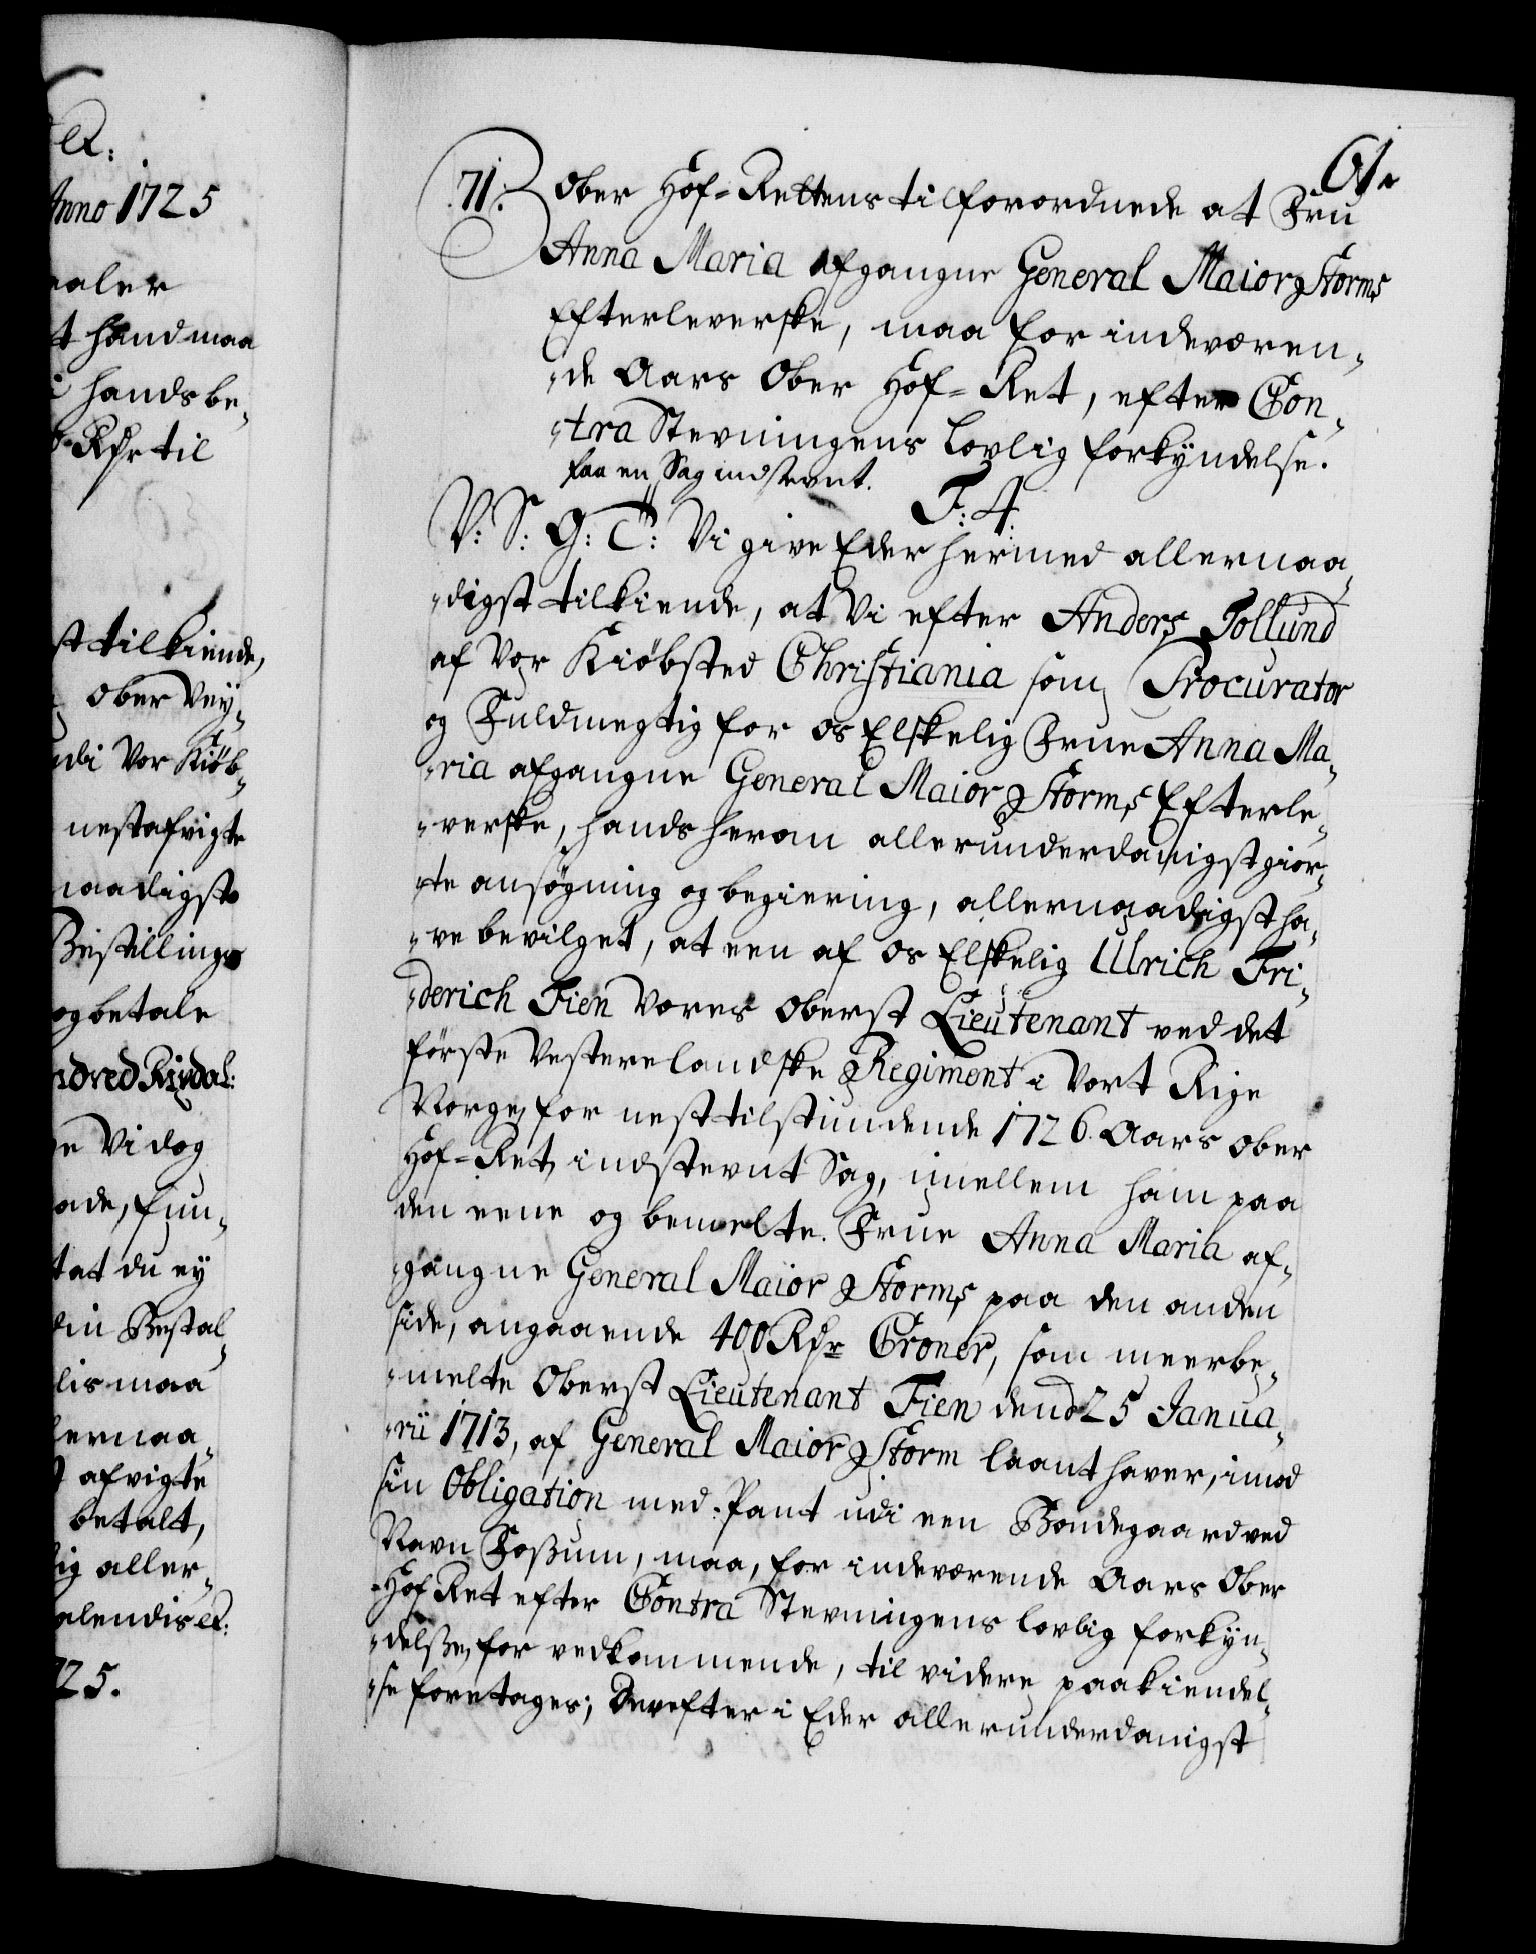 et:
Anno 1725
ealer
t hand maa
i hands be¬
Rdr til
st tilkiende,
Ober Vey¬
udi Vor Kiøb¬
nestafvigte
naadigste
Bestillings
og betale
ndred Rixdal:
ge Vi dog
ade, fun¬
t at du ey
din Bestal¬
lis maa
lernaa¬
afvigte
betalt,
ig aller¬
alendis et:
25.
61.
71. Ober Hof-Rettens tilforordnede at Fru
Anna Maria afgangne General Maior Storms
Efterleverske, maa for indeværen¬
de Aars Ober Hof-Ret, efter Con¬
tra Stevningens lovlig forkyndelse.
faa en Sag indstevnt.
F: 4.
V: S: G: T: Vi give Eder hermed allernaa¬
digst tilkiende, at Vi efter Anders Tollund
af Vor Kiøbsted Christiania som Procurator
og Fuldmegtig for os Elskelig Frue Anna Ma¬
ria afgangne General Maior Storms Efterle¬
verske, hands herom allerunderdanigst gior¬
te ansøgning og begiering, allernaadigst ha¬
ve bevilget, at een af os Elskelig Ulrich Fri¬
derich Fien Vores Oberst Lieutenant ved det
første Vesterelandske Regiment i Vort Rige
Norge, for nesttilstundende 1726. Aars Ober
Hof-Ret indstevnt Sag, imellem ham paa
den eene og bemelte Frue Anna Maria af¬
gangne General Maior Storms paa den anden
side, angaaende 400 Rdr Croner, som meerbe¬
melte Oberst Lieutenant Fien dend 25 Janua¬
rii 1713, af General Maior Storm laant haver, imod
sin Obligation med Pant udi een Bondegaard ved
Navn Fossum, maa, for indeværende Aars Ober
Hof Ret efter Contra Stevningens lovlig forkyn¬
delsse, for vedkommende, til videre paakiendel¬
se foretages; Derefter i Eder allerunderdanigst